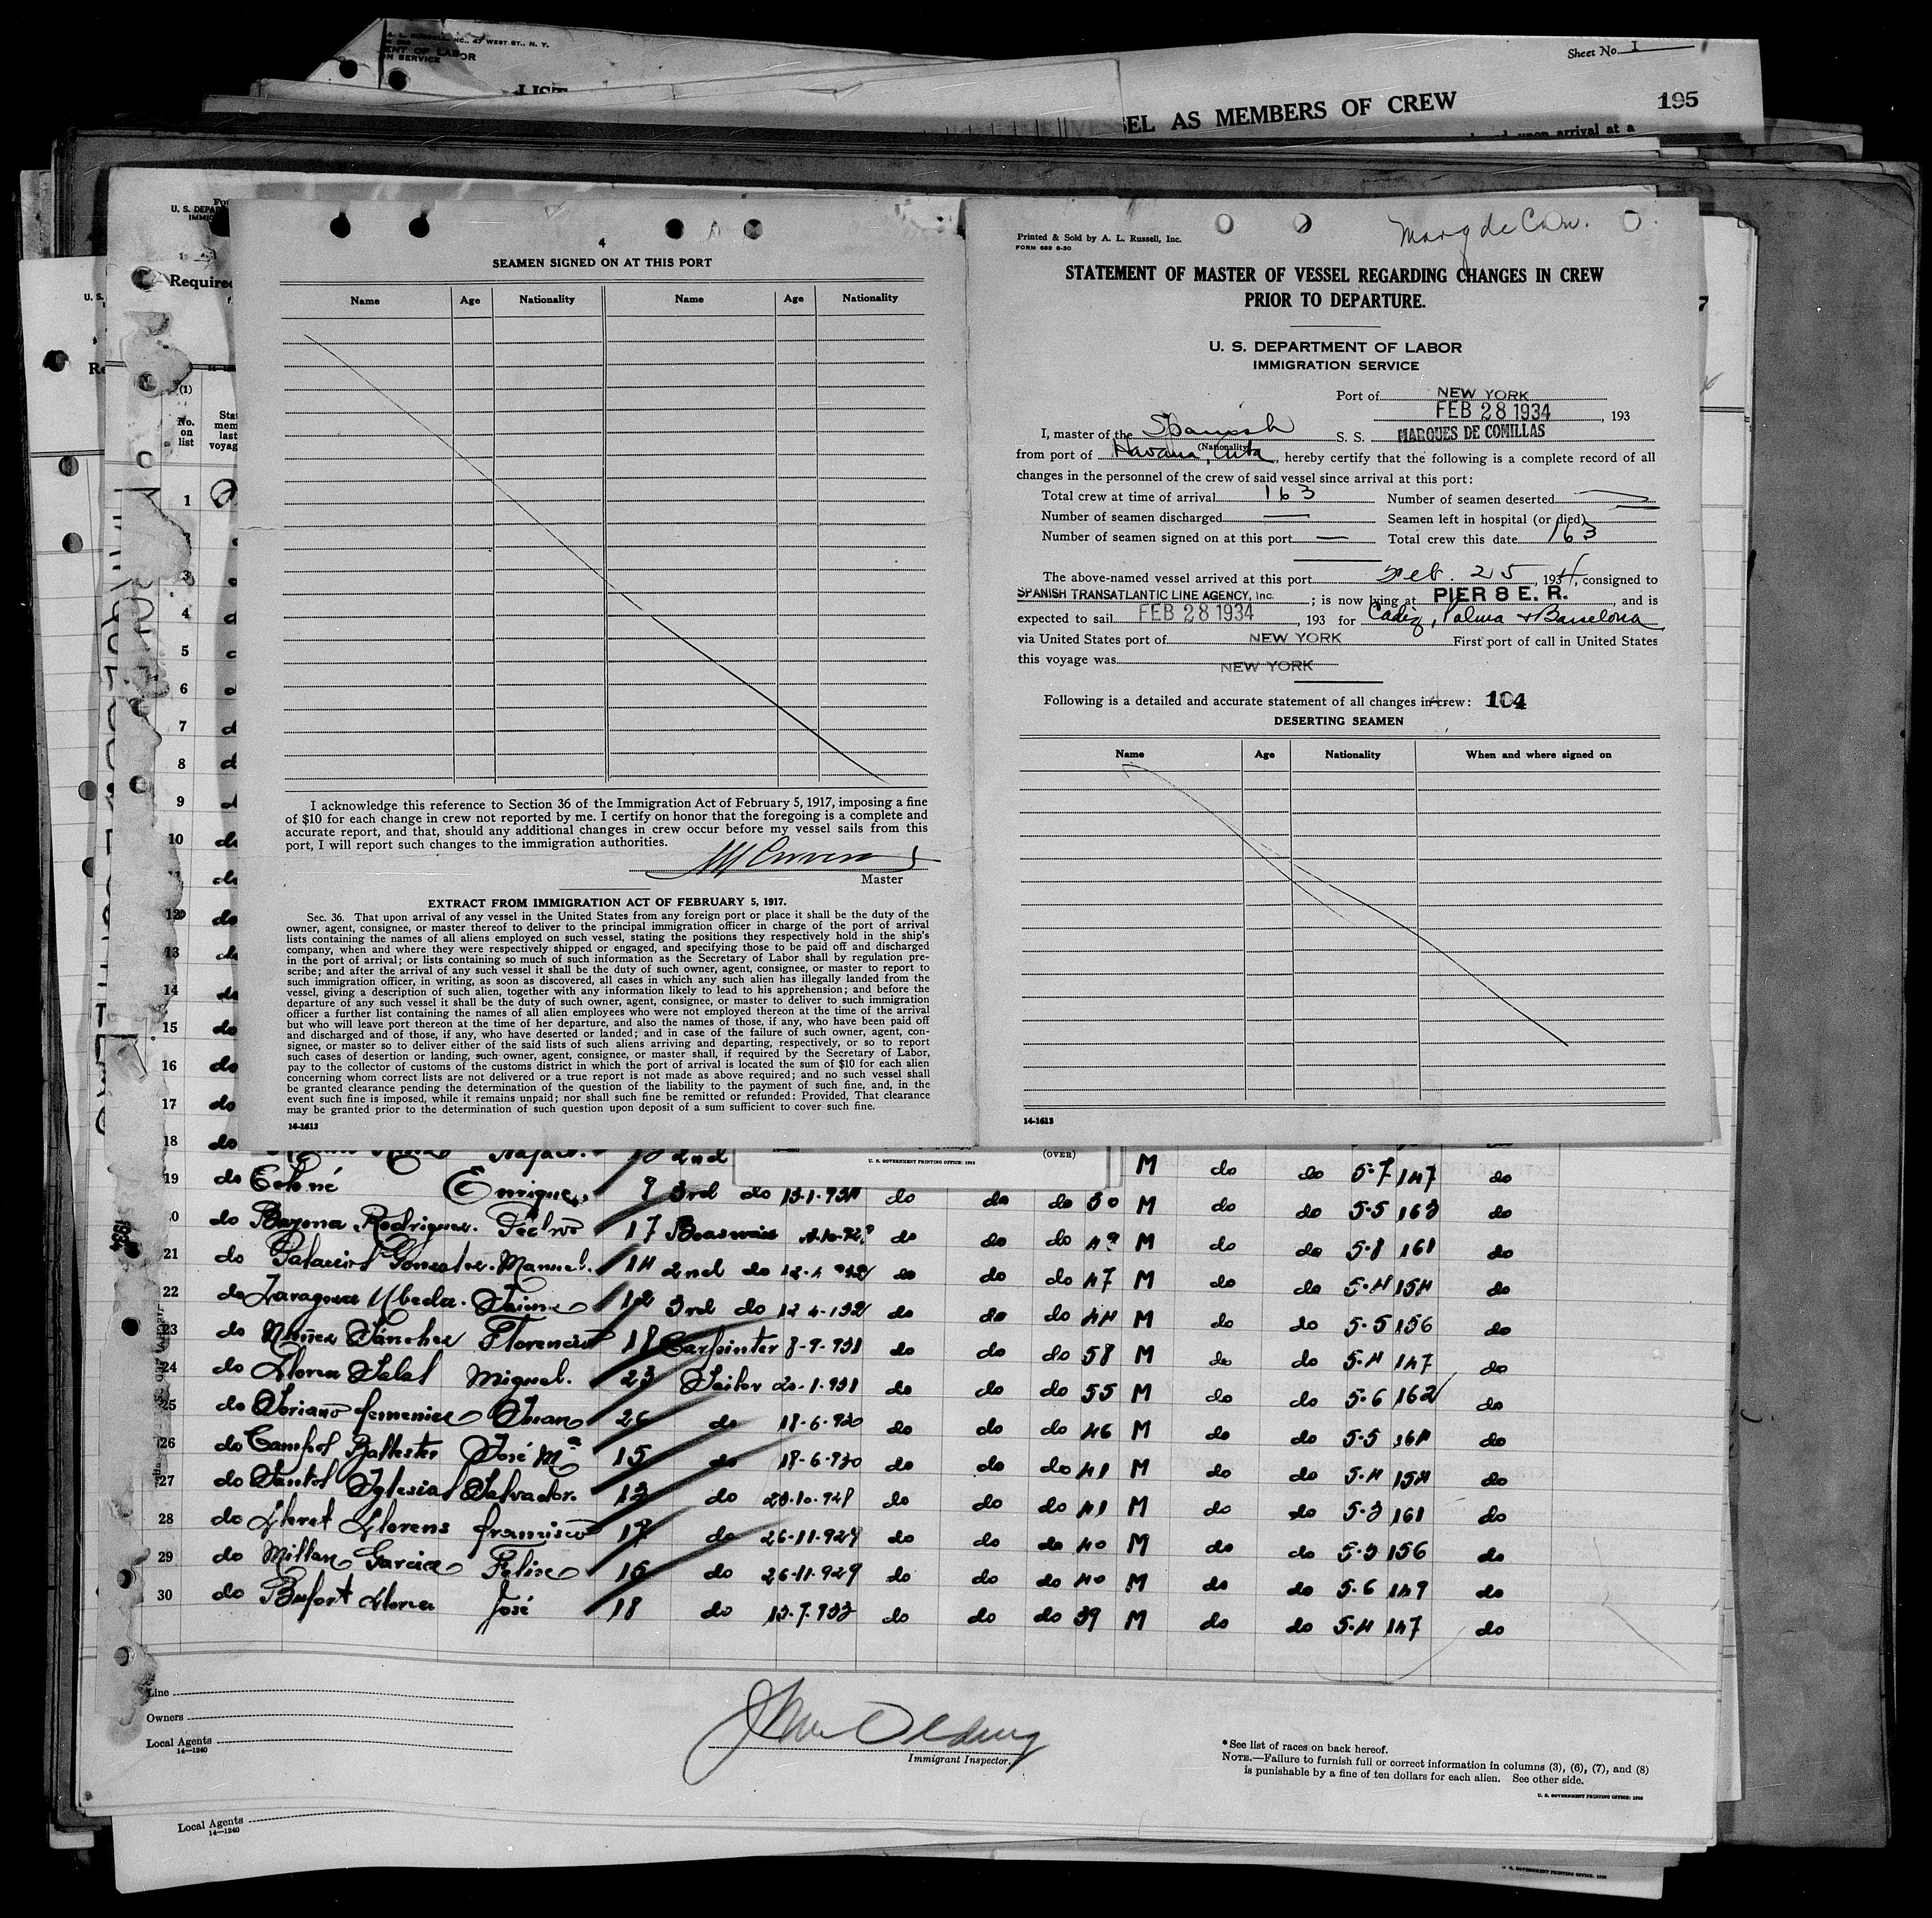 A. L. RUSSELL, INC., 47 WEST ST., N. Y.
ENT OF LABOR
ON SERVICE
Sheet No. 1
LIST
EL AS MEMBERS OF CREW
195
upon arrival at a
U. S. DEPA
Required
4
SEAMEN SIGNED ON AT THIS PORT
Name Age Nationality Name Age Nationality
I acknowledge this reference to Section 36 of the Immigration Act of February 5, 1917, imposing a fine
of $10 for each change in crew not reported by me. I certify on honor that the foregoing is a complete and
accurate report, and that, should any additional changes in crew occur before my vessel sails from this
port, I will report such changes to the immigration authorities.
Master
EXTRACT FROM IMMIGRATION ACT OF FEBRUARY 5, 1917.
Sec. 36. That upon arrival of any vessel in the United States from any foreign port or place it shall be the duty of the
owner, agent, consignee, or master thereof to deliver to the principal immigration officer in charge of the port of arrival
lists containing the names of all aliens employed on such vessel, stating the positions they respectively hold in the ship's
company, when and where they were respectively shipped or engaged, and specifying those to be paid off and discharged
in the port of arrival; or lists containing so much of such information as the Secretary of Labor shall by regulation pre-
scribe; and after the arrival of any such vessel it shall be the duty of such owner, agent, consignee, or master to report to
such immigration officer, in writing, as soon as discovered, all cases in which any such alien has illegally landed from the
vessel, giving a description of such alien, together with any information likely to lead to his apprehension; and before the
departure of any such vessel it shall be the duty of such owner, agent, consignee, or master to deliver to such immigration
officer a further list containing the names of all alien employees who were not employed thereon at the time of the arrival
but who will leave port thereon at the time of her departure, and also the names of those, if any, who have been paid off
and discharged and of those, if any, who have deserted or landed; and in case of the failure of such owner, agent, con-
signee, or master so to deliver either of the said lists of such aliens arriving and departing, respectively, or so to report
such cases of desertion or landing, such owner, agent, consignee, or master shall, if required by the Secretary of Labor,
pay to the collector of customs of the customs district in which the port of arrival is located the sum of $10 for each alien
concerning whom correct lists are not delivered or a true report is not made as above required; and no such vessel shall
be granted clearance pending the determination of the question of the liability to the payment of such fine, and, in the
event such fine is imposed, while it remains unpaid; nor shall such fine be remitted or refunded: Provided, That clearance
may be granted prior to the determination of such question upon deposit of a sum sufficient to cover such fine.
14-1613
Marq de Com.
Printed & Sold by A. L. Russell, Inc.
FORM 689 8-30
STATEMENT OF MASTER OF VESSEL REGARDING CHANGES IN CREW
PRIOR TO DEPARTURE.
U. S. DEPARTMENT OF LABOR
IMMIGRATION SERVICE
Port of NEW YORK
FEB 28 1934, 193
I, master of the Spanish S. S. MARQUES DE COMILLAS
(Nationality)
from port of Havana, Cuba, hereby certify that the following is a complete record of all
changes in the personnel of the crew of said vessel since arrival at this port:
Total crew at time of arrival 163 Number of seamen deserted —
Number of seamen discharged — Seamen left in hospital (or died) —
Number of seamen signed on at this port — Total crew this date 163
The above-named vessel arrived at this port Feb. 25, 1934, consigned to
SPANISH TRANSATLANTIC LINE AGENCY, Inc. ; is now lying at PIER 8 E. R. , and is
expected to sail FEB 28 1934, 193 for Cadiz, Palma & Barcelona
via United States port of NEW YORK First port of call in United States
this voyage was NEW YORK
Following is a detailed and accurate statement of all changes in crew: 104
DESERTING SEAMEN
Name Age Nationality When and where signed on
14-1613
(1)
No. on list
1
3
4
5
6
7
8
9
10 do
do
12 do
13 do
14 do
15 do
16 do
17 do
18 do 2nd M do do 5-7 147 do
U. S. GOVERNMENT PRINTING OFFICE: 1933
(OVER)
19 do Enrique 9 3rd do 13-1-934 do do do 30 M do do 5-5 163 do
do Bayona Rodriguez 17 do do do M do do 5-8 161 do
21 do Palacios Gonzalez Manuel 14 2nd do do do do 47 M do do 5-4 154 do
22 do Zaragoza Ubeda Jaime 12 3rd do 12-4-932 do do do 44 M do do 5-5 156 do
23 do Nuñez Sánchez Florencio 18 Carpinter 8-9-931 do do do 58 M do do 5-4 147 do
24 do Llorca Salat Miguel. 23 Sailor 20-1-931 do do do 55 M do do 5-6 162 do
25 do Soriano Juan 26 do 18-6-930 do do do 46 M do do 5-5 164 do
26 do Campos Ballester José Mª 15 do 18-6-930 do do do 41 M do do 5-4 154 do
27 do Santos Iglesias Salvador. 13 do do do do 41 M do do 5-3 161 do
28 do Lloret Llorens Francisco 17 do 26-11-929 do do do 40 M do do 5-3 156 do
29 do Millan Garcia Felix 15 do 26-11-929 do do do 40 M do do 5-6 149 do
30 do Bufort Llorca José 18 do 13-7-933 do do do 39 M do do 5-4 147 do
Line
Owners
Local Agents
14—1240
Immigrant Inspector.
*See list of races on back hereof.
NOTE.—Failure to furnish full or correct information in columns (3), (6), (7), and (8)
is punishable by a fine of ten dollars for each alien. See other side.
U. S. GOVERNMENT PRINTING OFFICE: 1933
Local Agents
14—1240